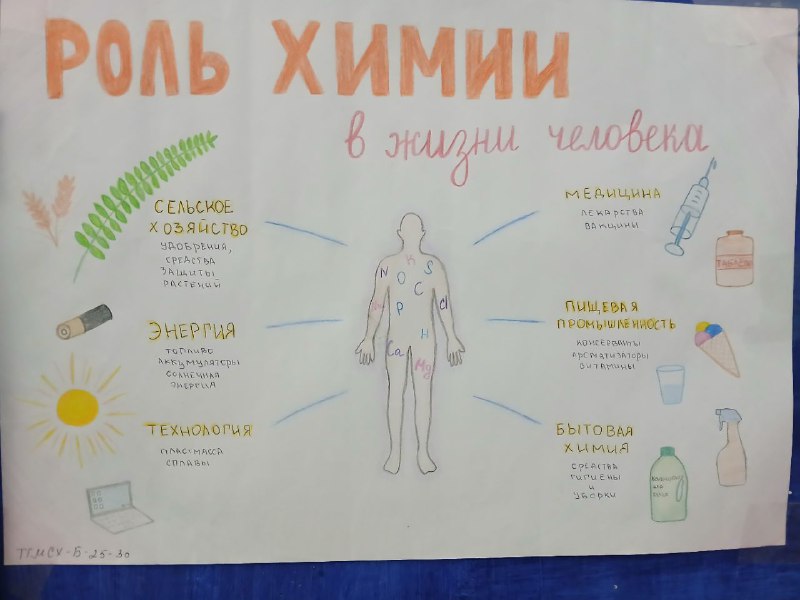 РОЛЬ ХИМИИ
в жизни человека
СЕЛЬСКОЕ
ХОЗЯЙСТВО
УДОБРЕНИЯ,
СРЕДСТВА
ЗАЩИТЫ
РАСТЕНИЙ
ЭНЕРГИЯ
ТОПЛИВО
АККУМУЛЯТОРЫ
СОЛНЕЧНАЯ
ЭНЕРГИЯ
ТЕХНОЛОГИЯ
ПЛАСТМАССА
СПЛАВЫ
K
N
O
S
C
P
Cl
H
Ca
Mg
МЕДИЦИНА
ЛЕКАРСТВА
ВАКЦИНЫ
ТАБЛЕТКИ
ПИЩЕВАЯ
ПРОМЫШЛЕННОСТЬ
КОНСЕРВАНТЫ
АРОМАТИЗАТОРЫ
ВИТАМИНЫ
БЫТОВАЯ
ХИМИЯ
СРЕДСТВА
ГИГИЕНЫ
И
УБОРКИ
ТГМСХ-Б-25-30